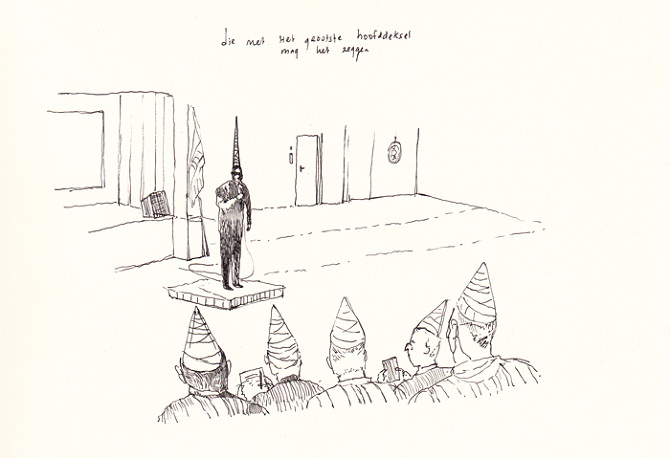 die met het grootste hoofddeksel
mag het zeggen